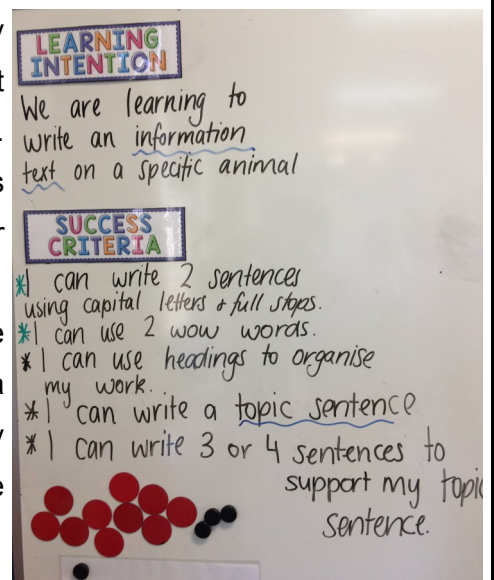 LEARNING
INTENTION
We are learning to
write an information
text on a specific animal
SUCCESS
CRITERIA
*I can write 2 sentences
using capital letters & full stops.
*I can use 2 wow words.
*I can use headings to organise
my work.
*I can write a topic sentence
*I can write 3 or 4 sentences to
support my topic
sentence.